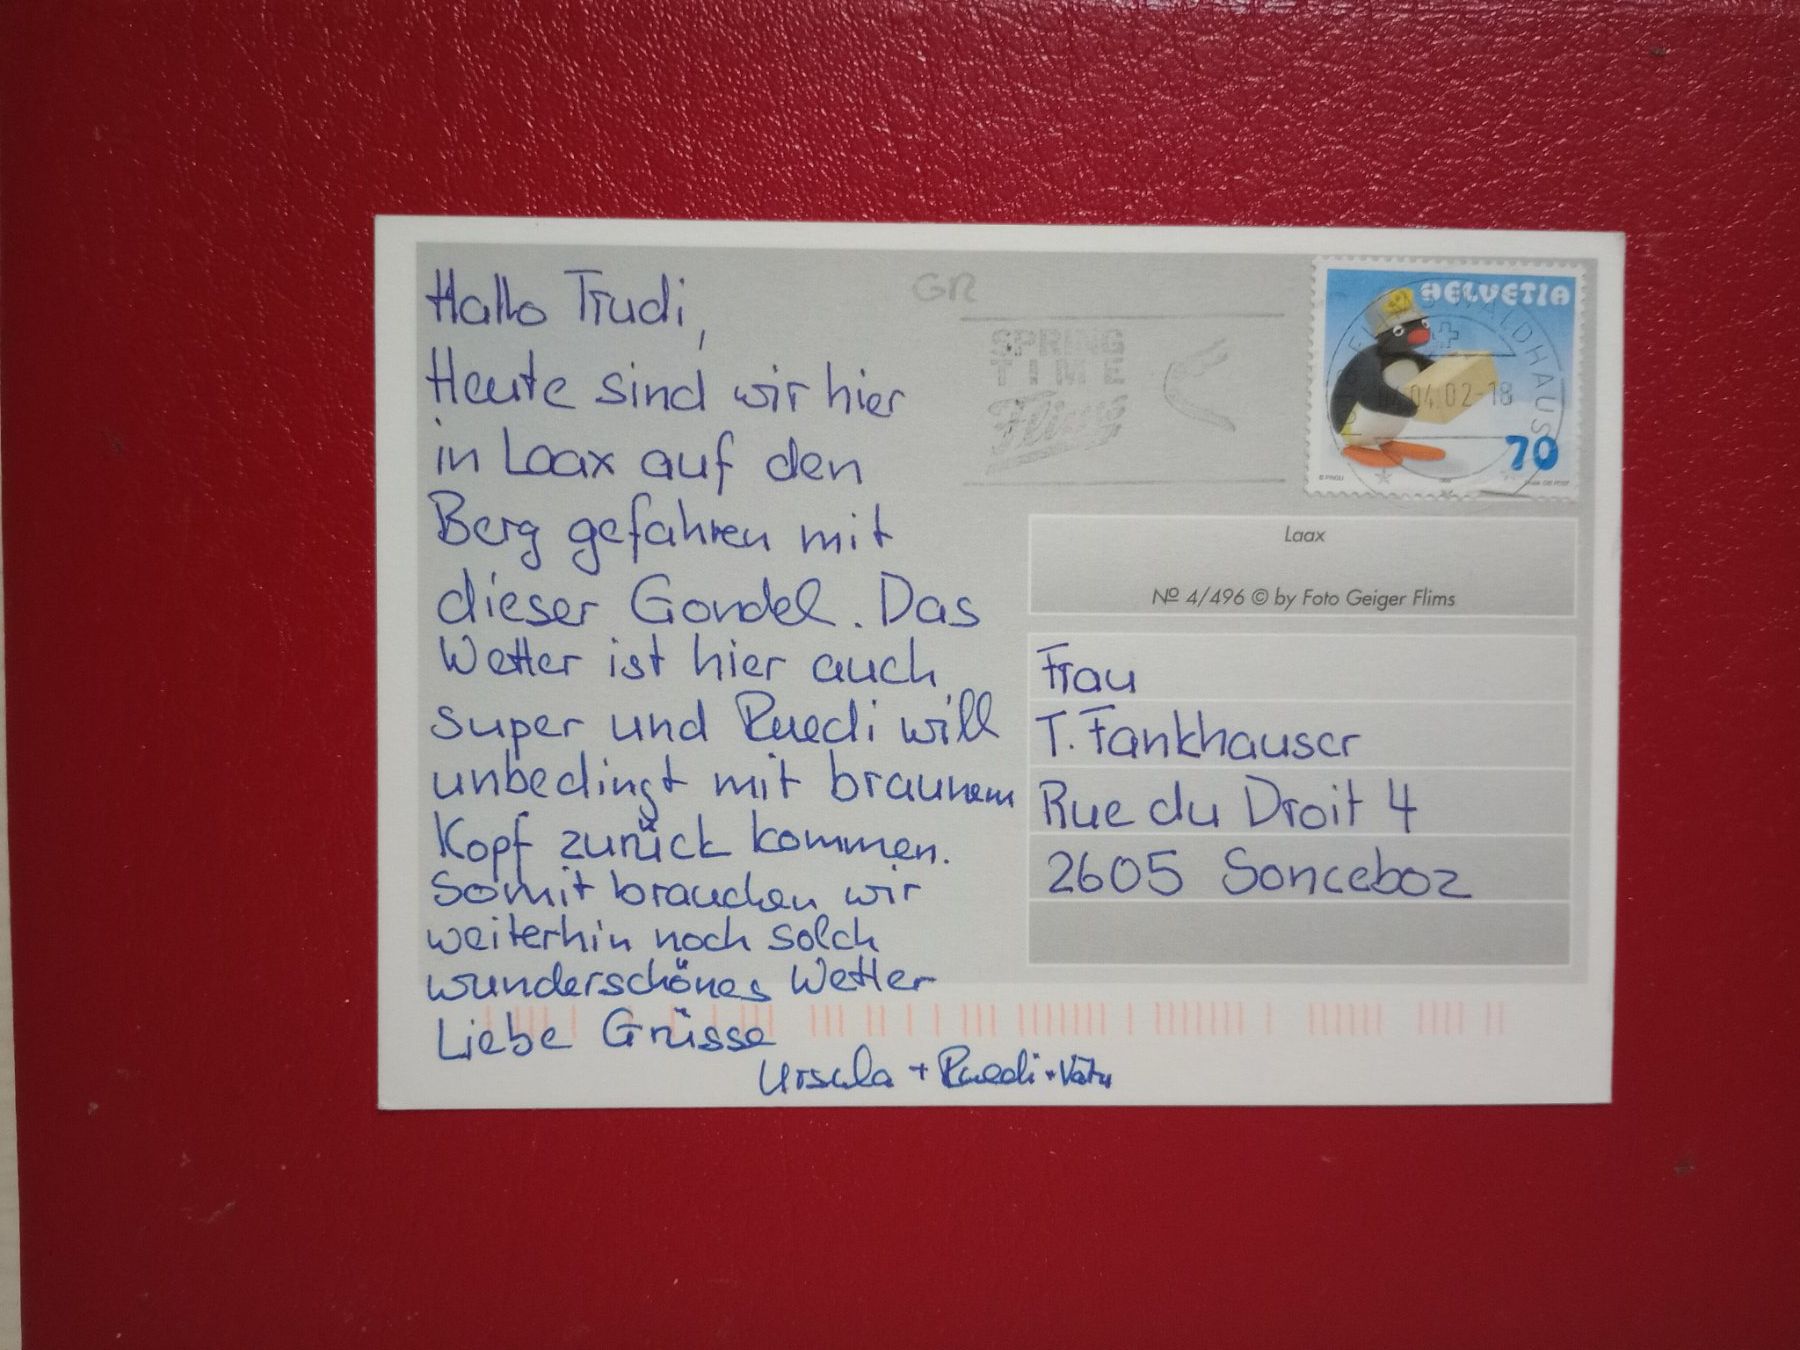 Hallo Trudi,
Heute sind wir hier
in Laax auf den
Berg gefahren mit
dieser Gondel. Das
Wetter ist hier auch
super und Ruedi will
unbedingt mit braunem
Kopf zurück kommen.
Somit brauchen wir
weiterhin noch solch
wunderschönes Wetter
Liebe Grüsse
Ursula + Ruedi +
GR
SPRING
TIME
Flims
HELVETIA
WALDHAUS
04.02-18
70
Laax
Nº 4/496 © by Foto Geiger Flims
Frau
T. Fankhauser
Rue du Droit 4
2605 Sonceboz